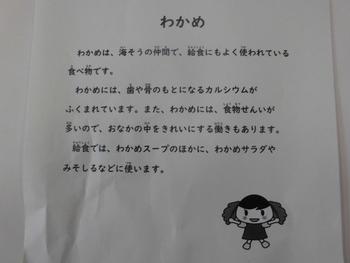 わかめ
わかめは、海そうの仲間で、給食にもよく使われている
食べ物です。
わかめには、歯や骨のもとになるカルシウムが
ふくまれています。また、わかめには、食物せんいが
多いので、おなかの中をきれいにする働きもあります。
給食では、わかめスープのほかに、わかめサラダや
みそしるなどに使います。